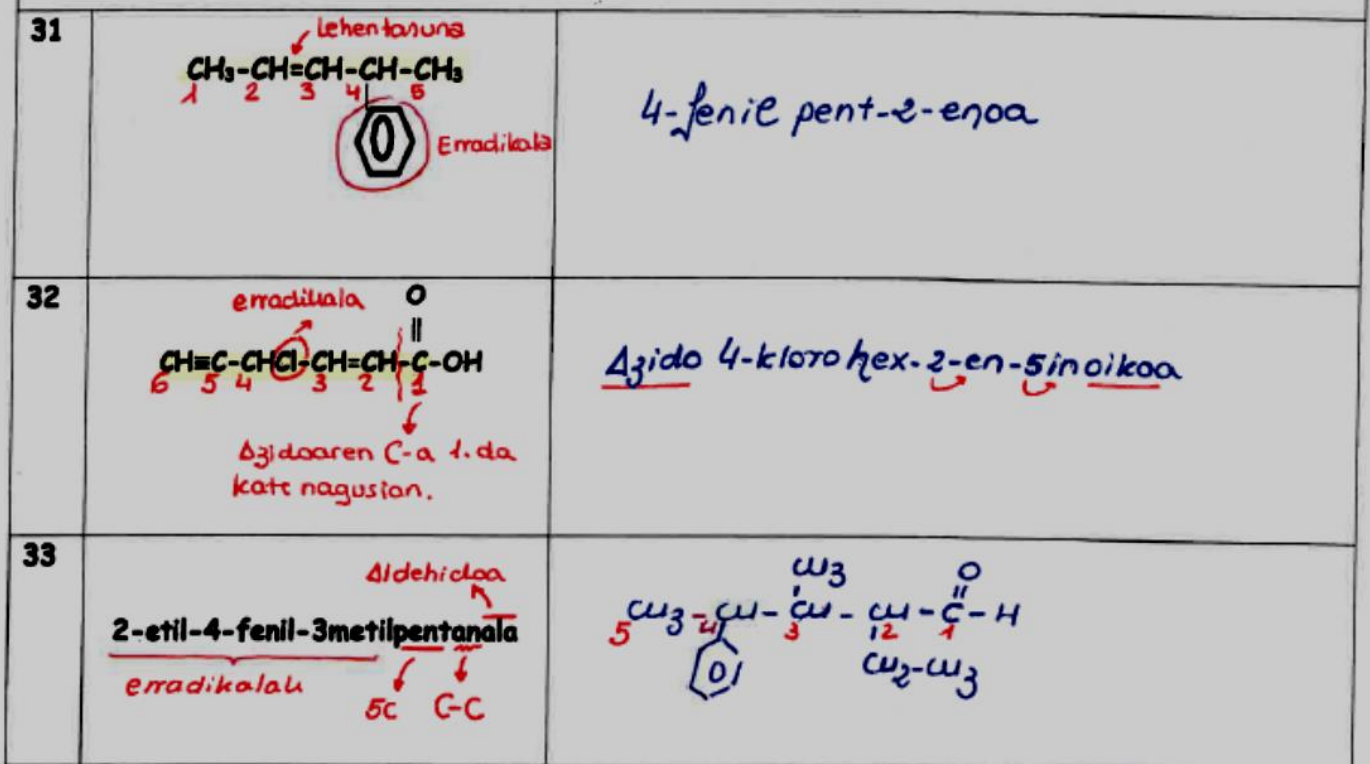 31
Lehentasuna
CH₃-CH=CH-CH-CH₃
1 2 3 4 5
Erradikala
4-fenil pent-2-enoa
32
erradikala
O
CH≡C-CHCl-CH=CH-C-OH
6 5 4 3 2 1
Azidoaren C-a 1. da
kate nagusian.
Azido 4-kloro hex-2-en-5inoikoa
33
Aldehidoa
2-etil-4-fenil-3metilpentanala
erradikalak
5C C-C
CH3 O
CH3-CH-CH-CH-C-H
5 4 3 2 1
CH2-CH3